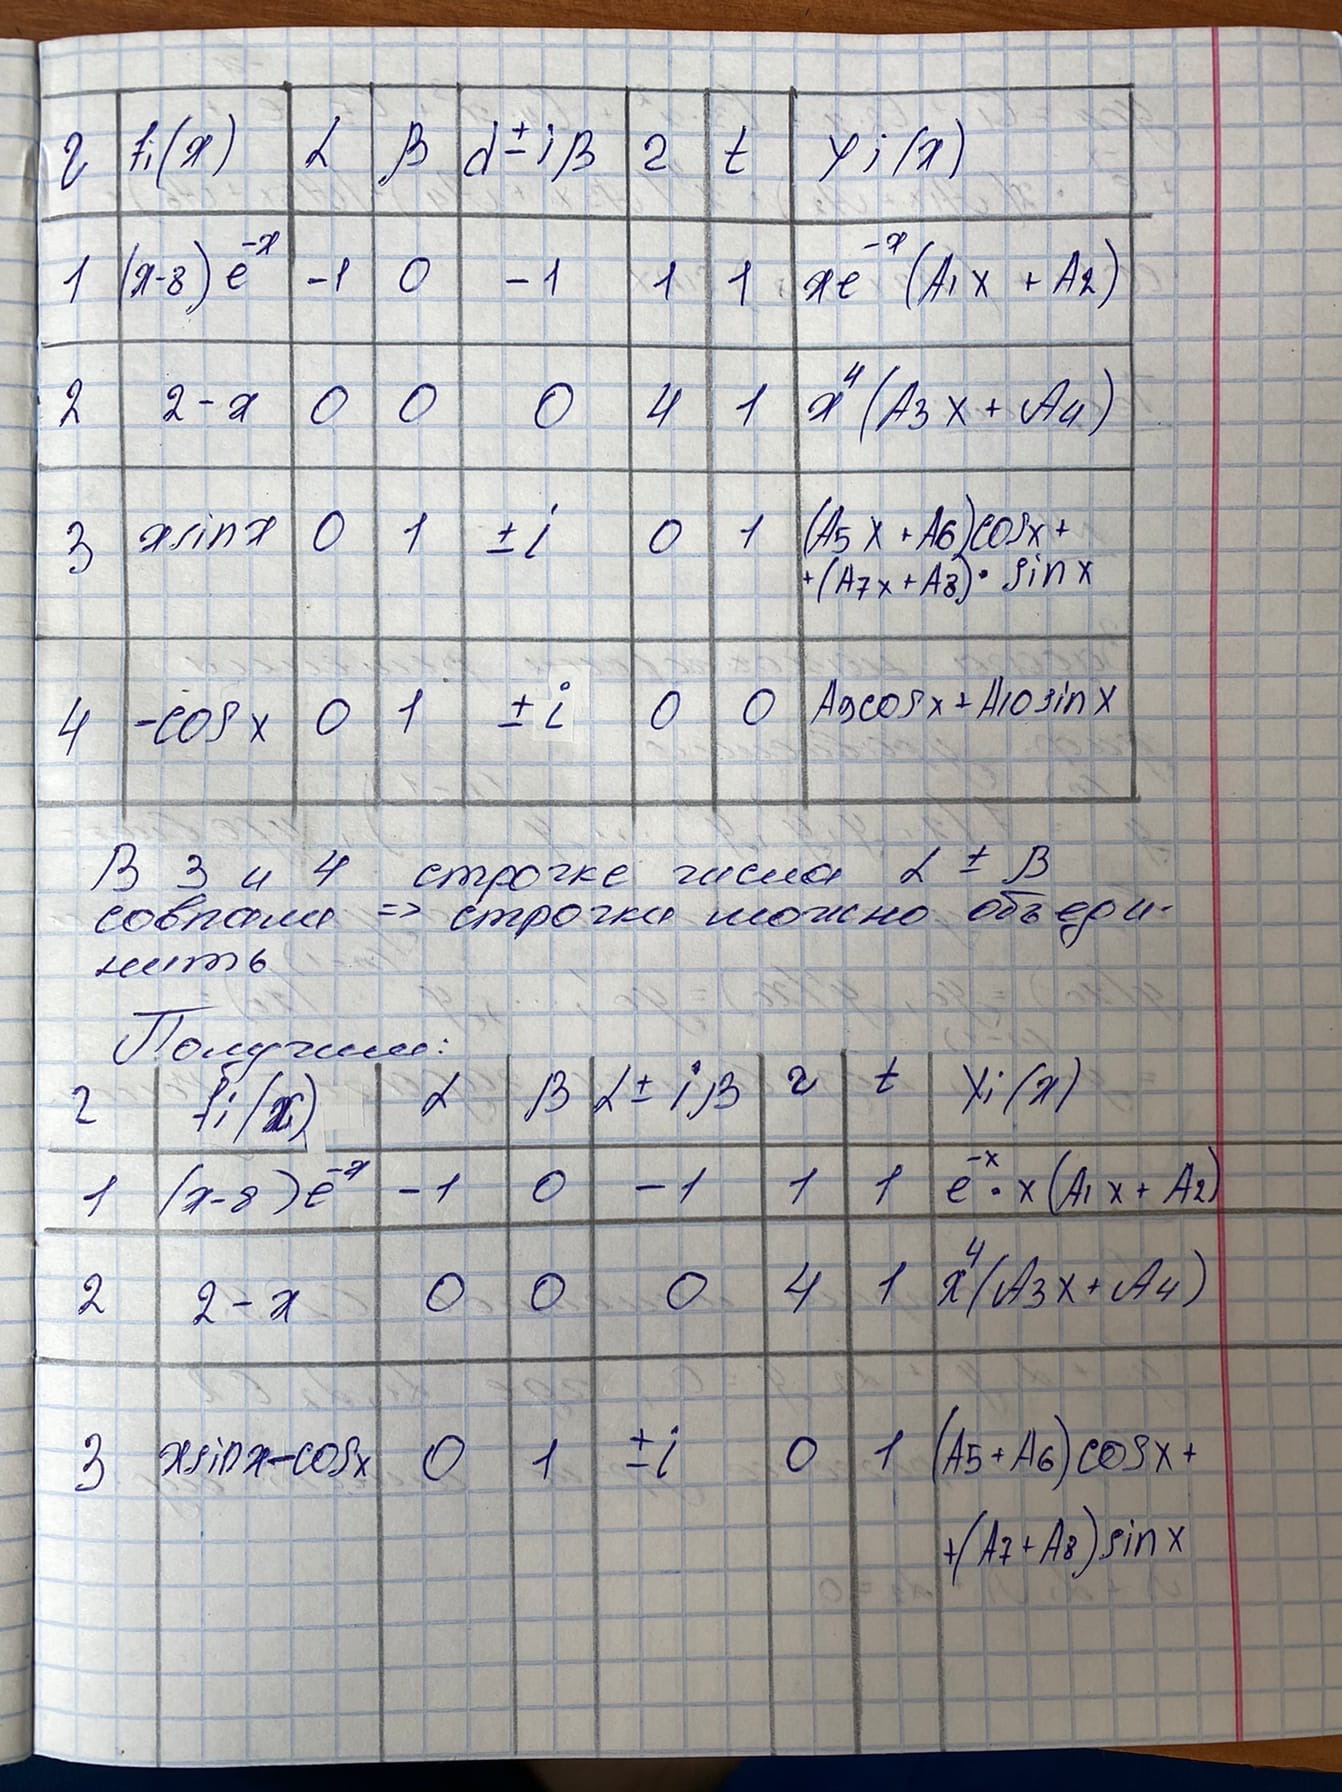 г fi(x) α β α±iβ г t yi(x)
1 (x-8)e^-x -1 0 -1 1 1 xe^-x (A1x + A2)
2 2-x 0 0 0 4 1 x^4(A3x + A4)
3 xsinx 0 1 ±i 0 1 (A5x + A6)cosx +
+(A7x + A8)· sinx
4 -cosx 0 1 ±i 0 0 A9cosx + A10sinx
В 3 и 4 строчке числа α ± β
совпали => строчки можно объеди-
нить
Получим:
г fi(x) α β α±iβ г t yi(x)
1 (x-8)e^-x -1 0 -1 1 1 e^-x · x(A1x + A2)
2 2-x 0 0 0 4 1 x^4(A3x + A4)
3 xsinx-cosx 0 1 ±i 0 1 (A5+A6)cosx +
+(A7+A8)sinx